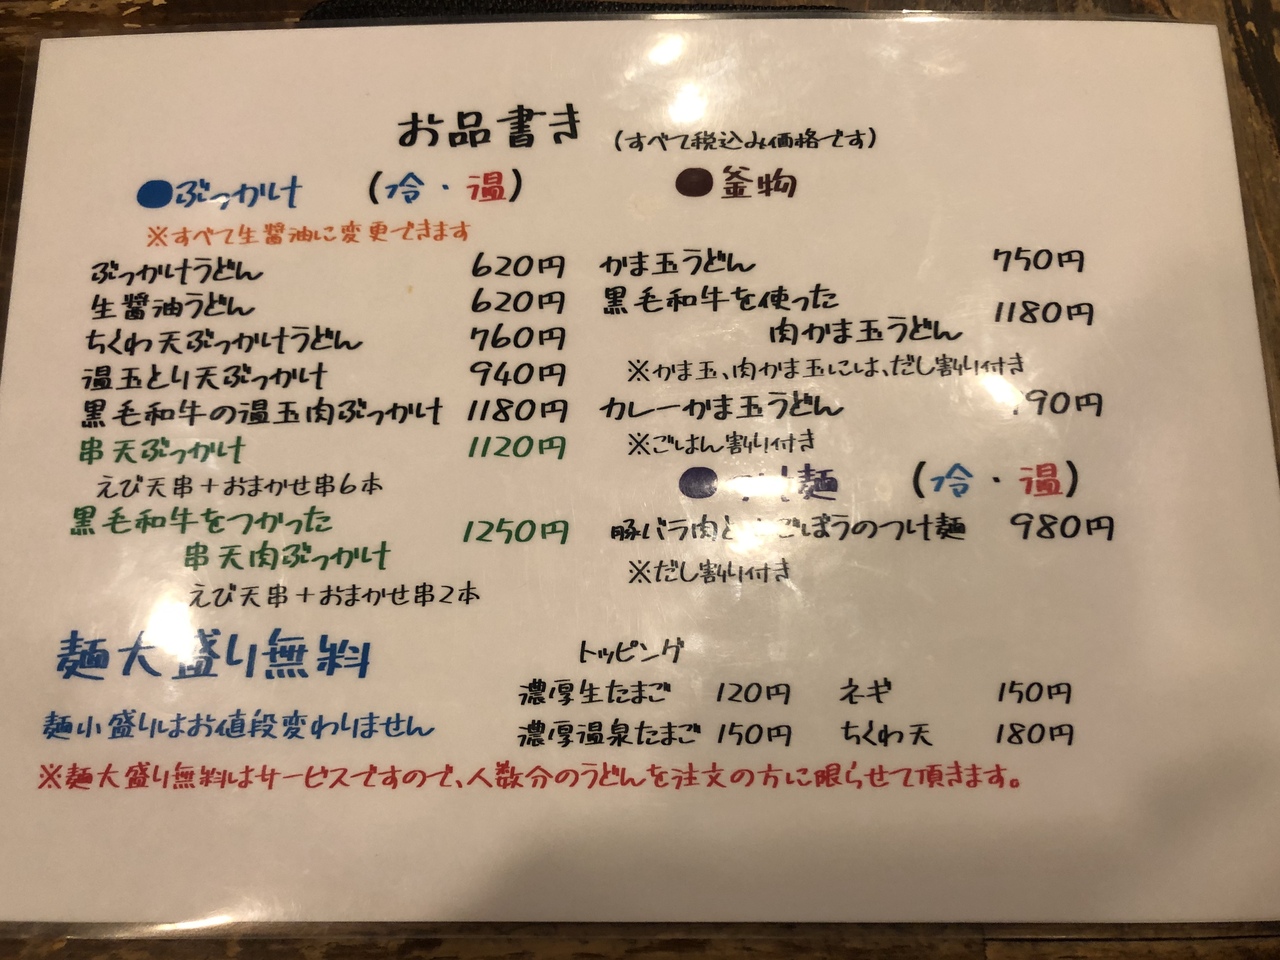 お品書き (すべて税込み価格です)
●ぶっかけ (冷・温)
※すべて生醤油に変更できます
ぶっかけうどん 620円
生醤油うどん 620円
ちくわ天ぶっかけうどん 760円
温玉とり天ぶっかけ 940円
黒毛和牛の温玉肉ぶっかけ 1180円
串天ぶっかけ 1120円
えび天串+おまかせ串6本
黒毛和牛をつかった
串天肉ぶっかけ 1250円
えび天串+おまかせ串2本
●釜物
かま玉うどん 750円
黒毛和牛を使った
肉かま玉うどん 1180円
※かま玉、肉かま玉には、だし割り付き
カレーかま玉うどん 90円
※ごはん割り付き
●つけ麺 (冷・温)
豚バラ肉と ごぼうのつけ麺 980円
※だし割り付き
麺大盛り無料
麺小盛りはお値段変わりません
トッピング
濃厚生たまご 120円 ネギ 150円
濃厚温泉たまご 150円 ちくわ天 180円
※麺大盛り無料はサービスですので、人数分のうどんを注文の方に限らせて頂きます。